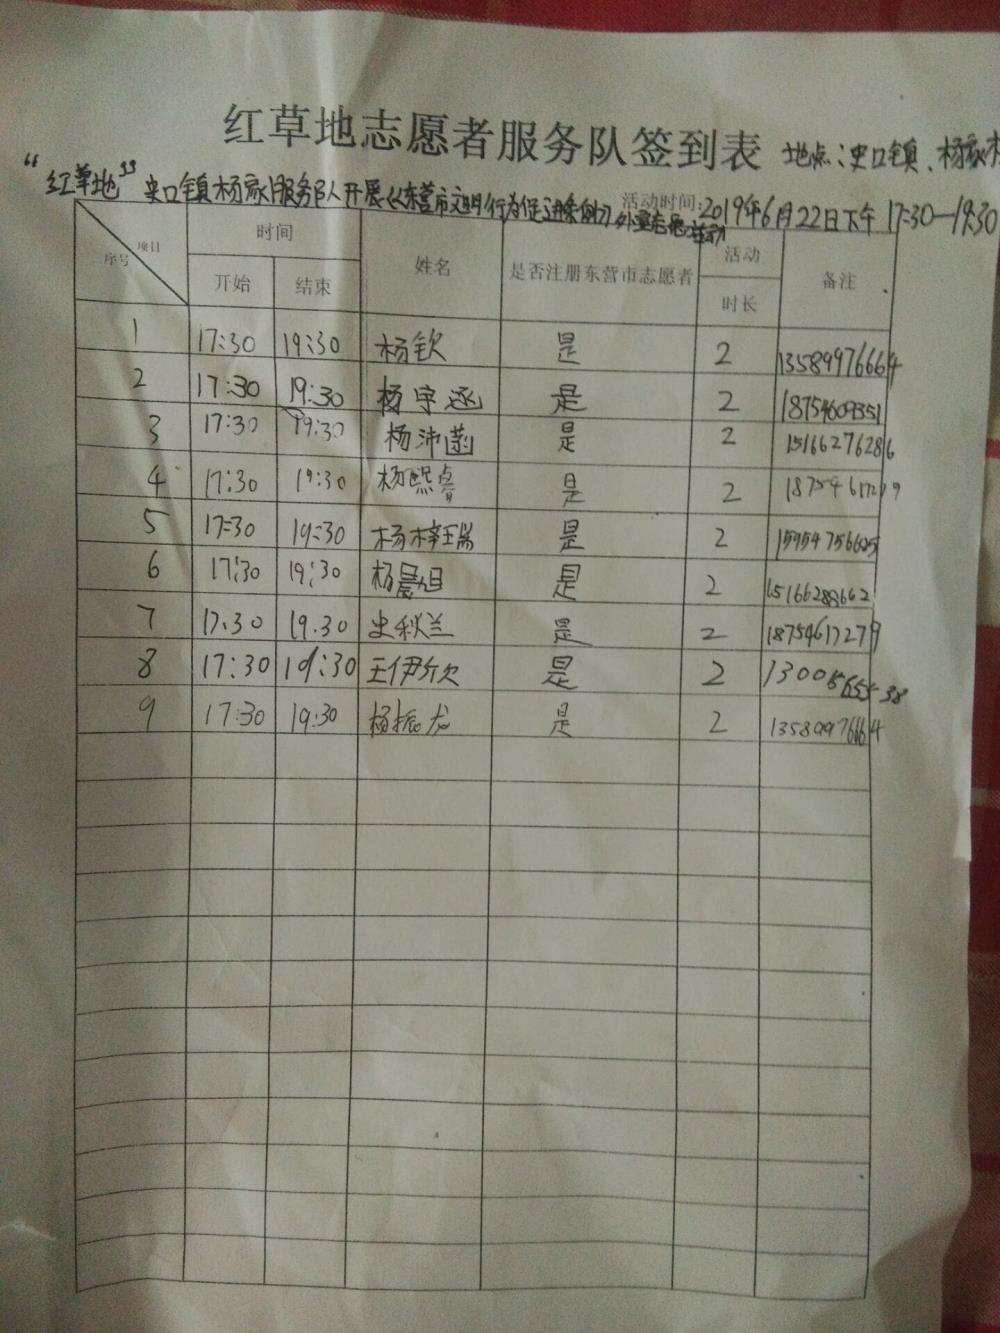 红草地志愿者服务队签到表 地点：史口镇、杨家村
“红草地”史口镇杨家服务队开展《东营市文明行为促进条例》 活动时间：2019年6月22日下午 17:30—19:30
项目 序号 时间 姓名 是否注册东营市志愿者 活动 备注
开始 结束 时长
1 17:30 19:30 杨钦 是 2 13589976664
2 17:30 19:30 杨宇涵 是 2 18754609351
3 17:30 19:30 杨沛菡 是 2 15166276286
4 17:30 19:30 杨熙睿 是 2 18754617279
5 17:30 19:30 杨梓瑞 是 2 15954756625
6 17:30 19:30 杨晨旭 是 2 15166288662
7 17:30 19.30 史秋兰 是 2 18754617279
8 17:30 19:30 王伊欣 是 2
9 17:30 19.30 杨振龙 是 2 13589976664